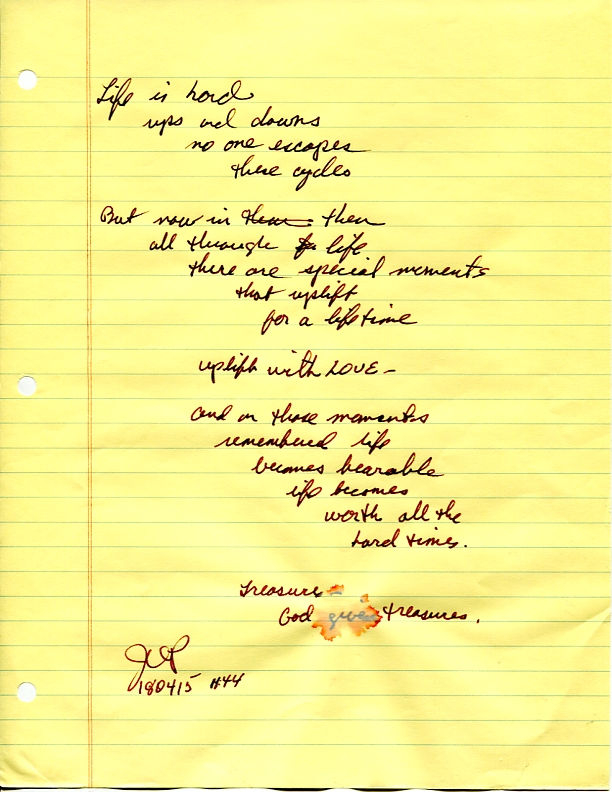 Life is hard
ups and downs
no one escapes
these cycles
But now in then
all through life
there are special moments
that uplift
for a lifetime
uplift with LOVE -
and in those moments
remembered life
becomes bearable
life becomes
worth all the
hard times.
Treasure -
God given treasures.
JCP
180415 #44